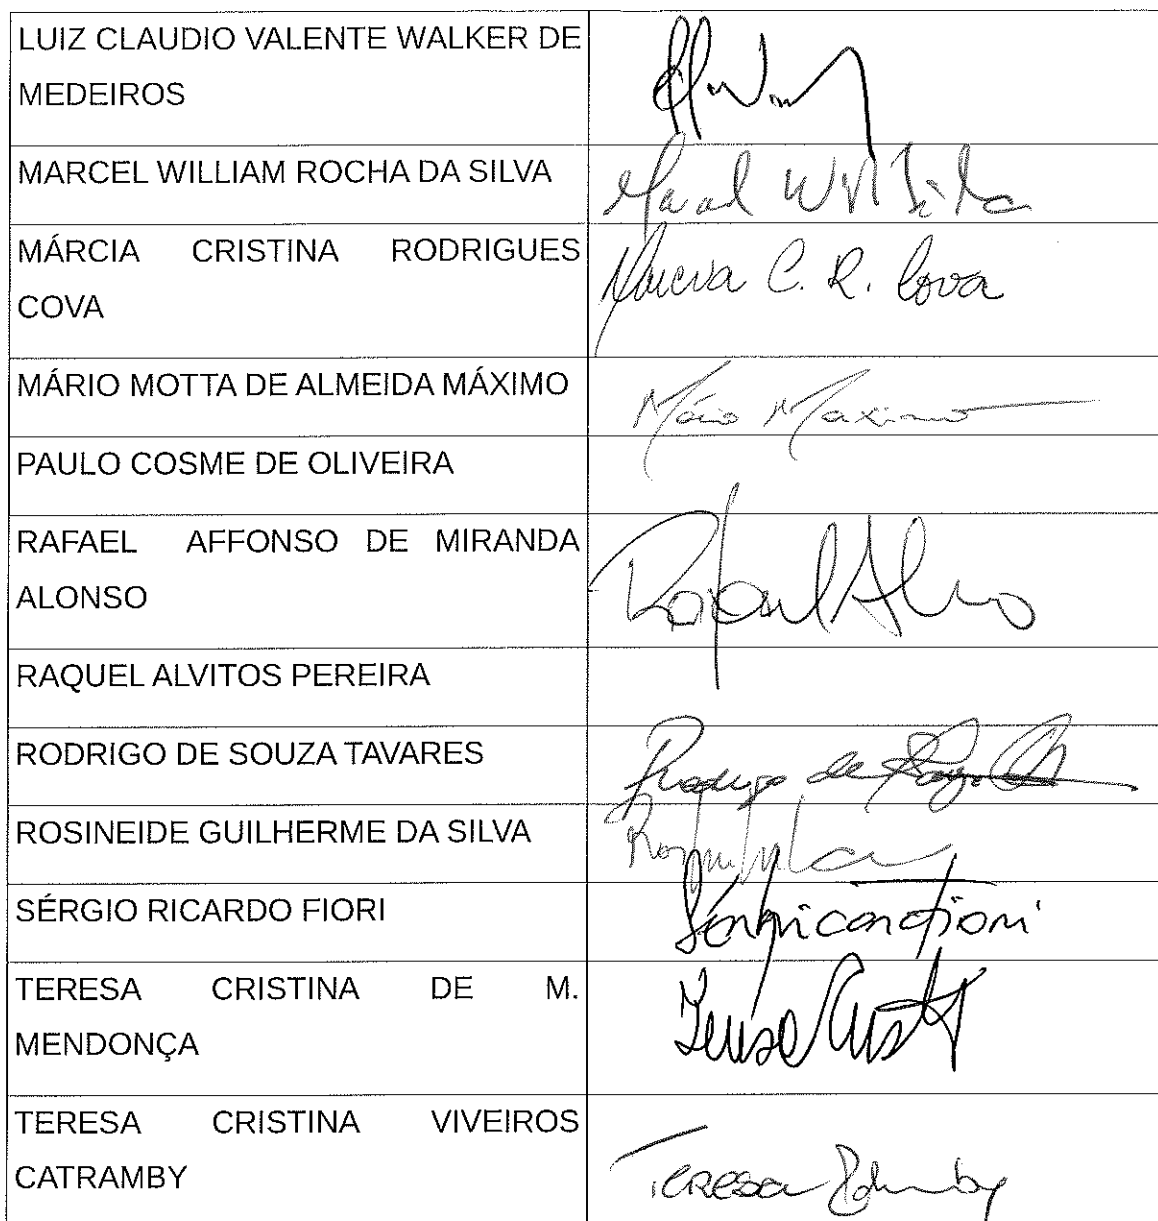 LUIZ CLAUDIO VALENTE WALKER DE
MEDEIROS
MARCEL WILLIAM ROCHA DA SILVA
MÁRCIA CRISTINA RODRIGUES
COVA
Márcia C. R. Cova
MÁRIO MOTTA DE ALMEIDA MÁXIMO
Mário Maximo
PAULO COSME DE OLIVEIRA
RAFAEL AFFONSO DE MIRANDA
ALONSO
Rafael
RAQUEL ALVITOS PEREIRA
RODRIGO DE SOUZA TAVARES
Rodrigo de
ROSINEIDE GUILHERME DA SILVA
SÉRGIO RICARDO FIORI
TERESA CRISTINA DE M.
MENDONÇA
TERESA CRISTINA VIVEIROS
CATRAMBY
Teresa